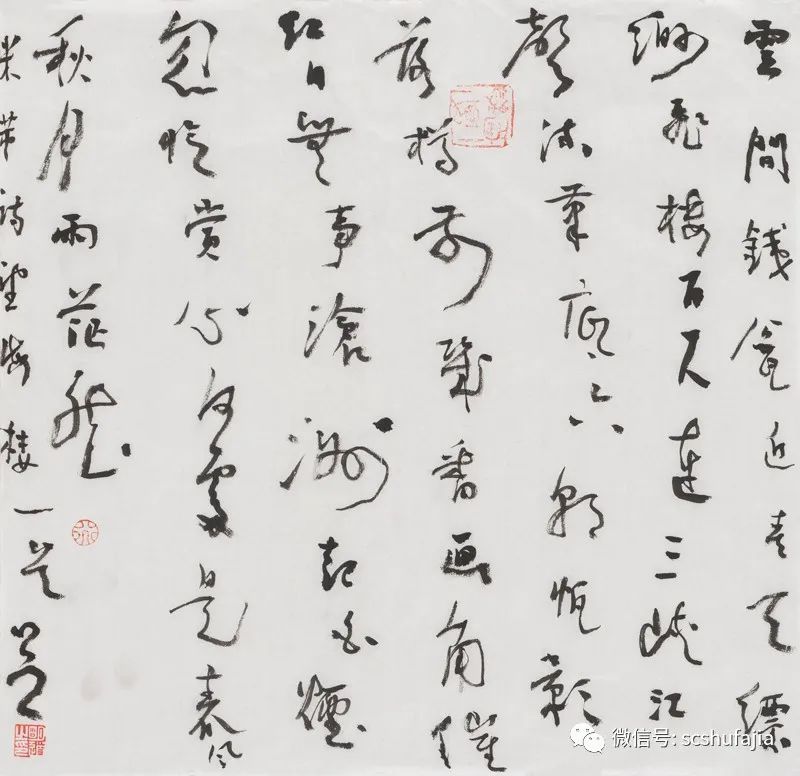 雲間錢瓮近青天縹
緲飛樓百尺連三峽江
聲流筆底六朝帆影
落樽前幾番画角催
紅日無事滄洲起白煙
忽憶賞心何處是春風
秋月兩茫然
米芾詩望海樓一首
微信号: scshufajia